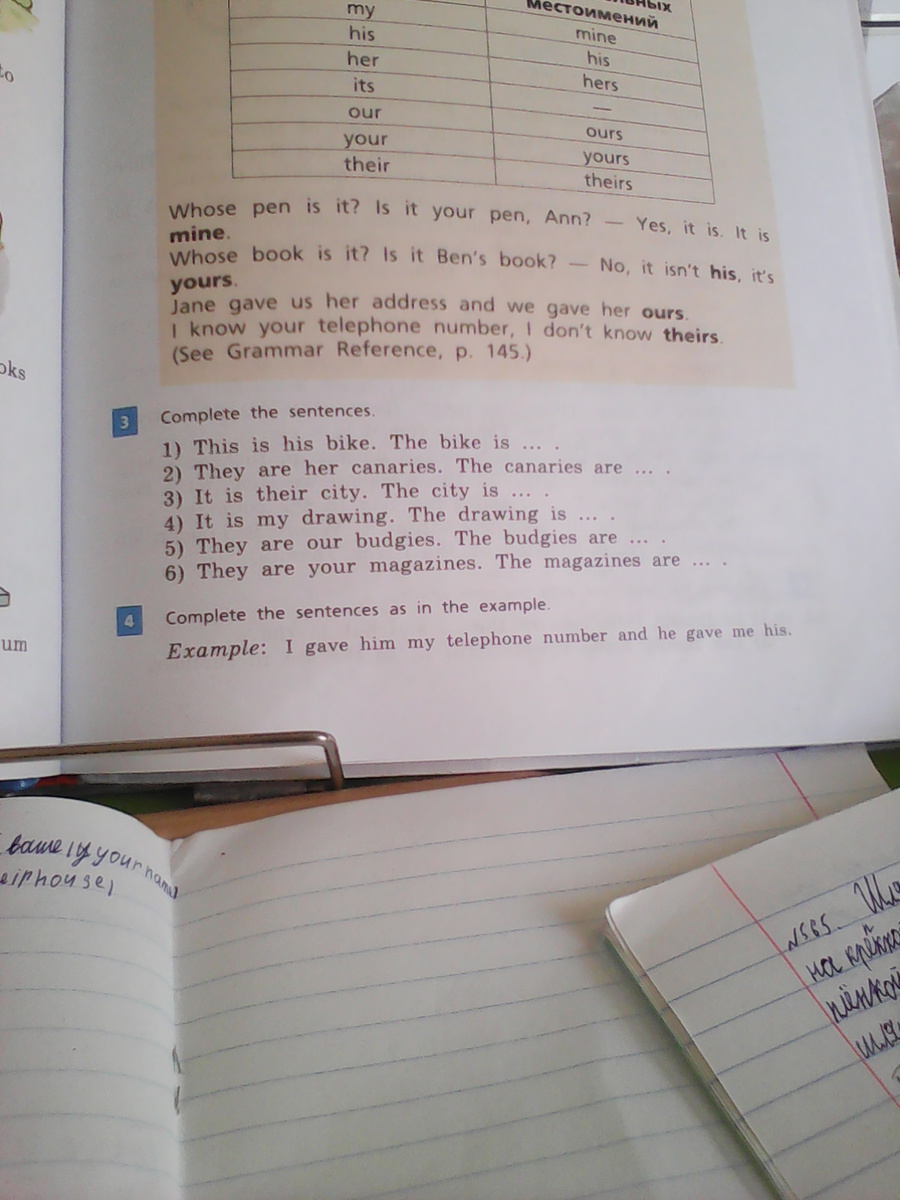 to
oks
um
местоимений
my
mine
his
his
her
hers
its
—
our
ours
your
yours
their
theirs
Whose pen is it? Is it your pen, Ann? — Yes, it is. It is
mine.
Whose book is it? Is it Ben's book? — No, it isn't his, it's
yours.
Jane gave us her address and we gave her ours.
I know your telephone number, I don't know theirs.
(See Grammar Reference, p. 145.)
3 Complete the sentences.
1) This is his bike. The bike is ... .
2) They are her canaries. The canaries are ... .
3) It is their city. The city is ... .
4) It is my drawing. The drawing is ... .
5) They are our budgies. The budgies are ... .
6) They are your magazines. The magazines are ... .
4 Complete the sentences as in the example.
Example: I gave him my telephone number and he gave me his.
your
№585.
на